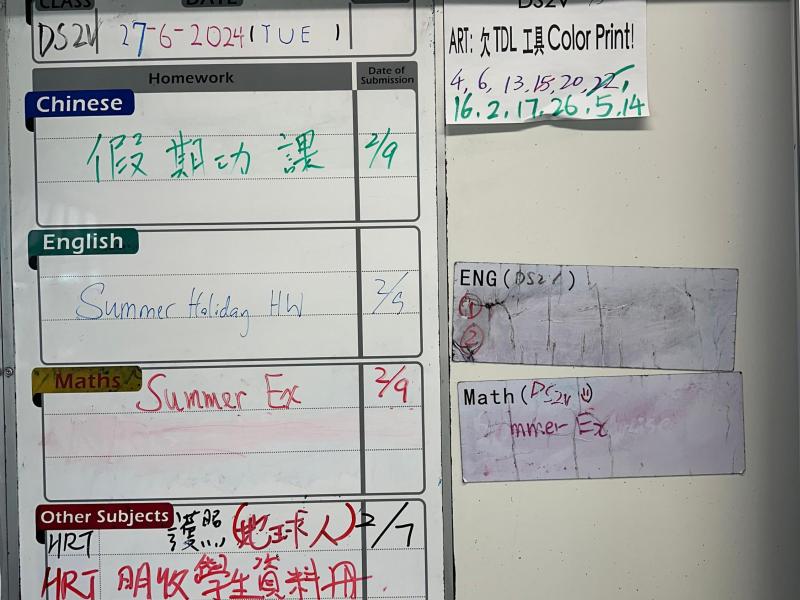 CLASS DATE
DS2V 27-6-2024 (TUE)
Homework Date of Submission
Chinese
假期功課 2/9
English
Summer Holiday HW 2/9
Maths Summer Ex 2/9
Other Subjects
HRT 護照 (地球人) 2/7
HRT 明收學生資料冊
DS2V
ART: 欠 TDL 工具 Color Print!
4, 6, 13, 15, 20, 22,
16, 2, 17, 26, 5, 14
ENG (DS2V)
①
②
Math (DS2V)
Summer Ex